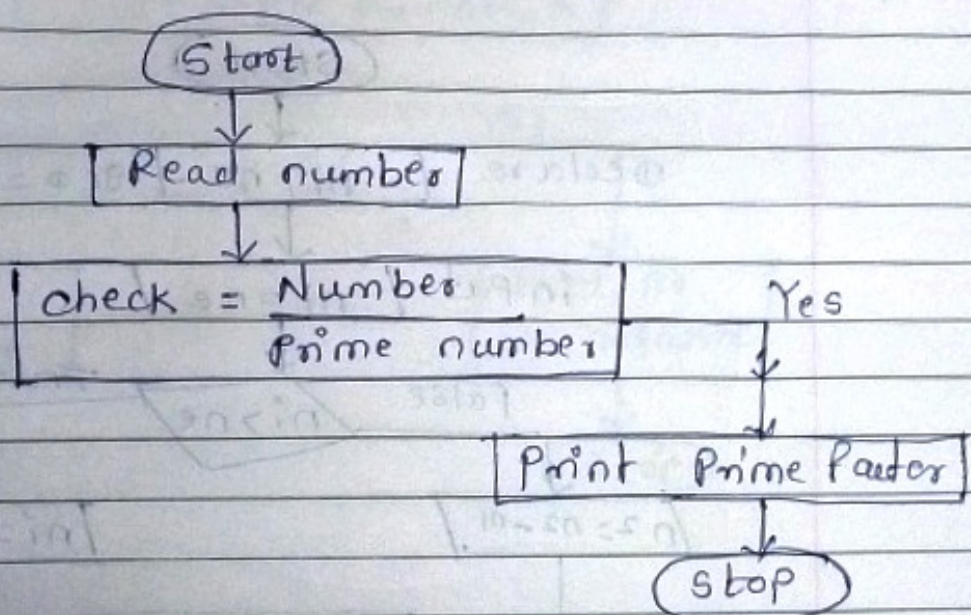 Start
Read number
check = Number
Prime number
Yes
Print Prime Factor
stop